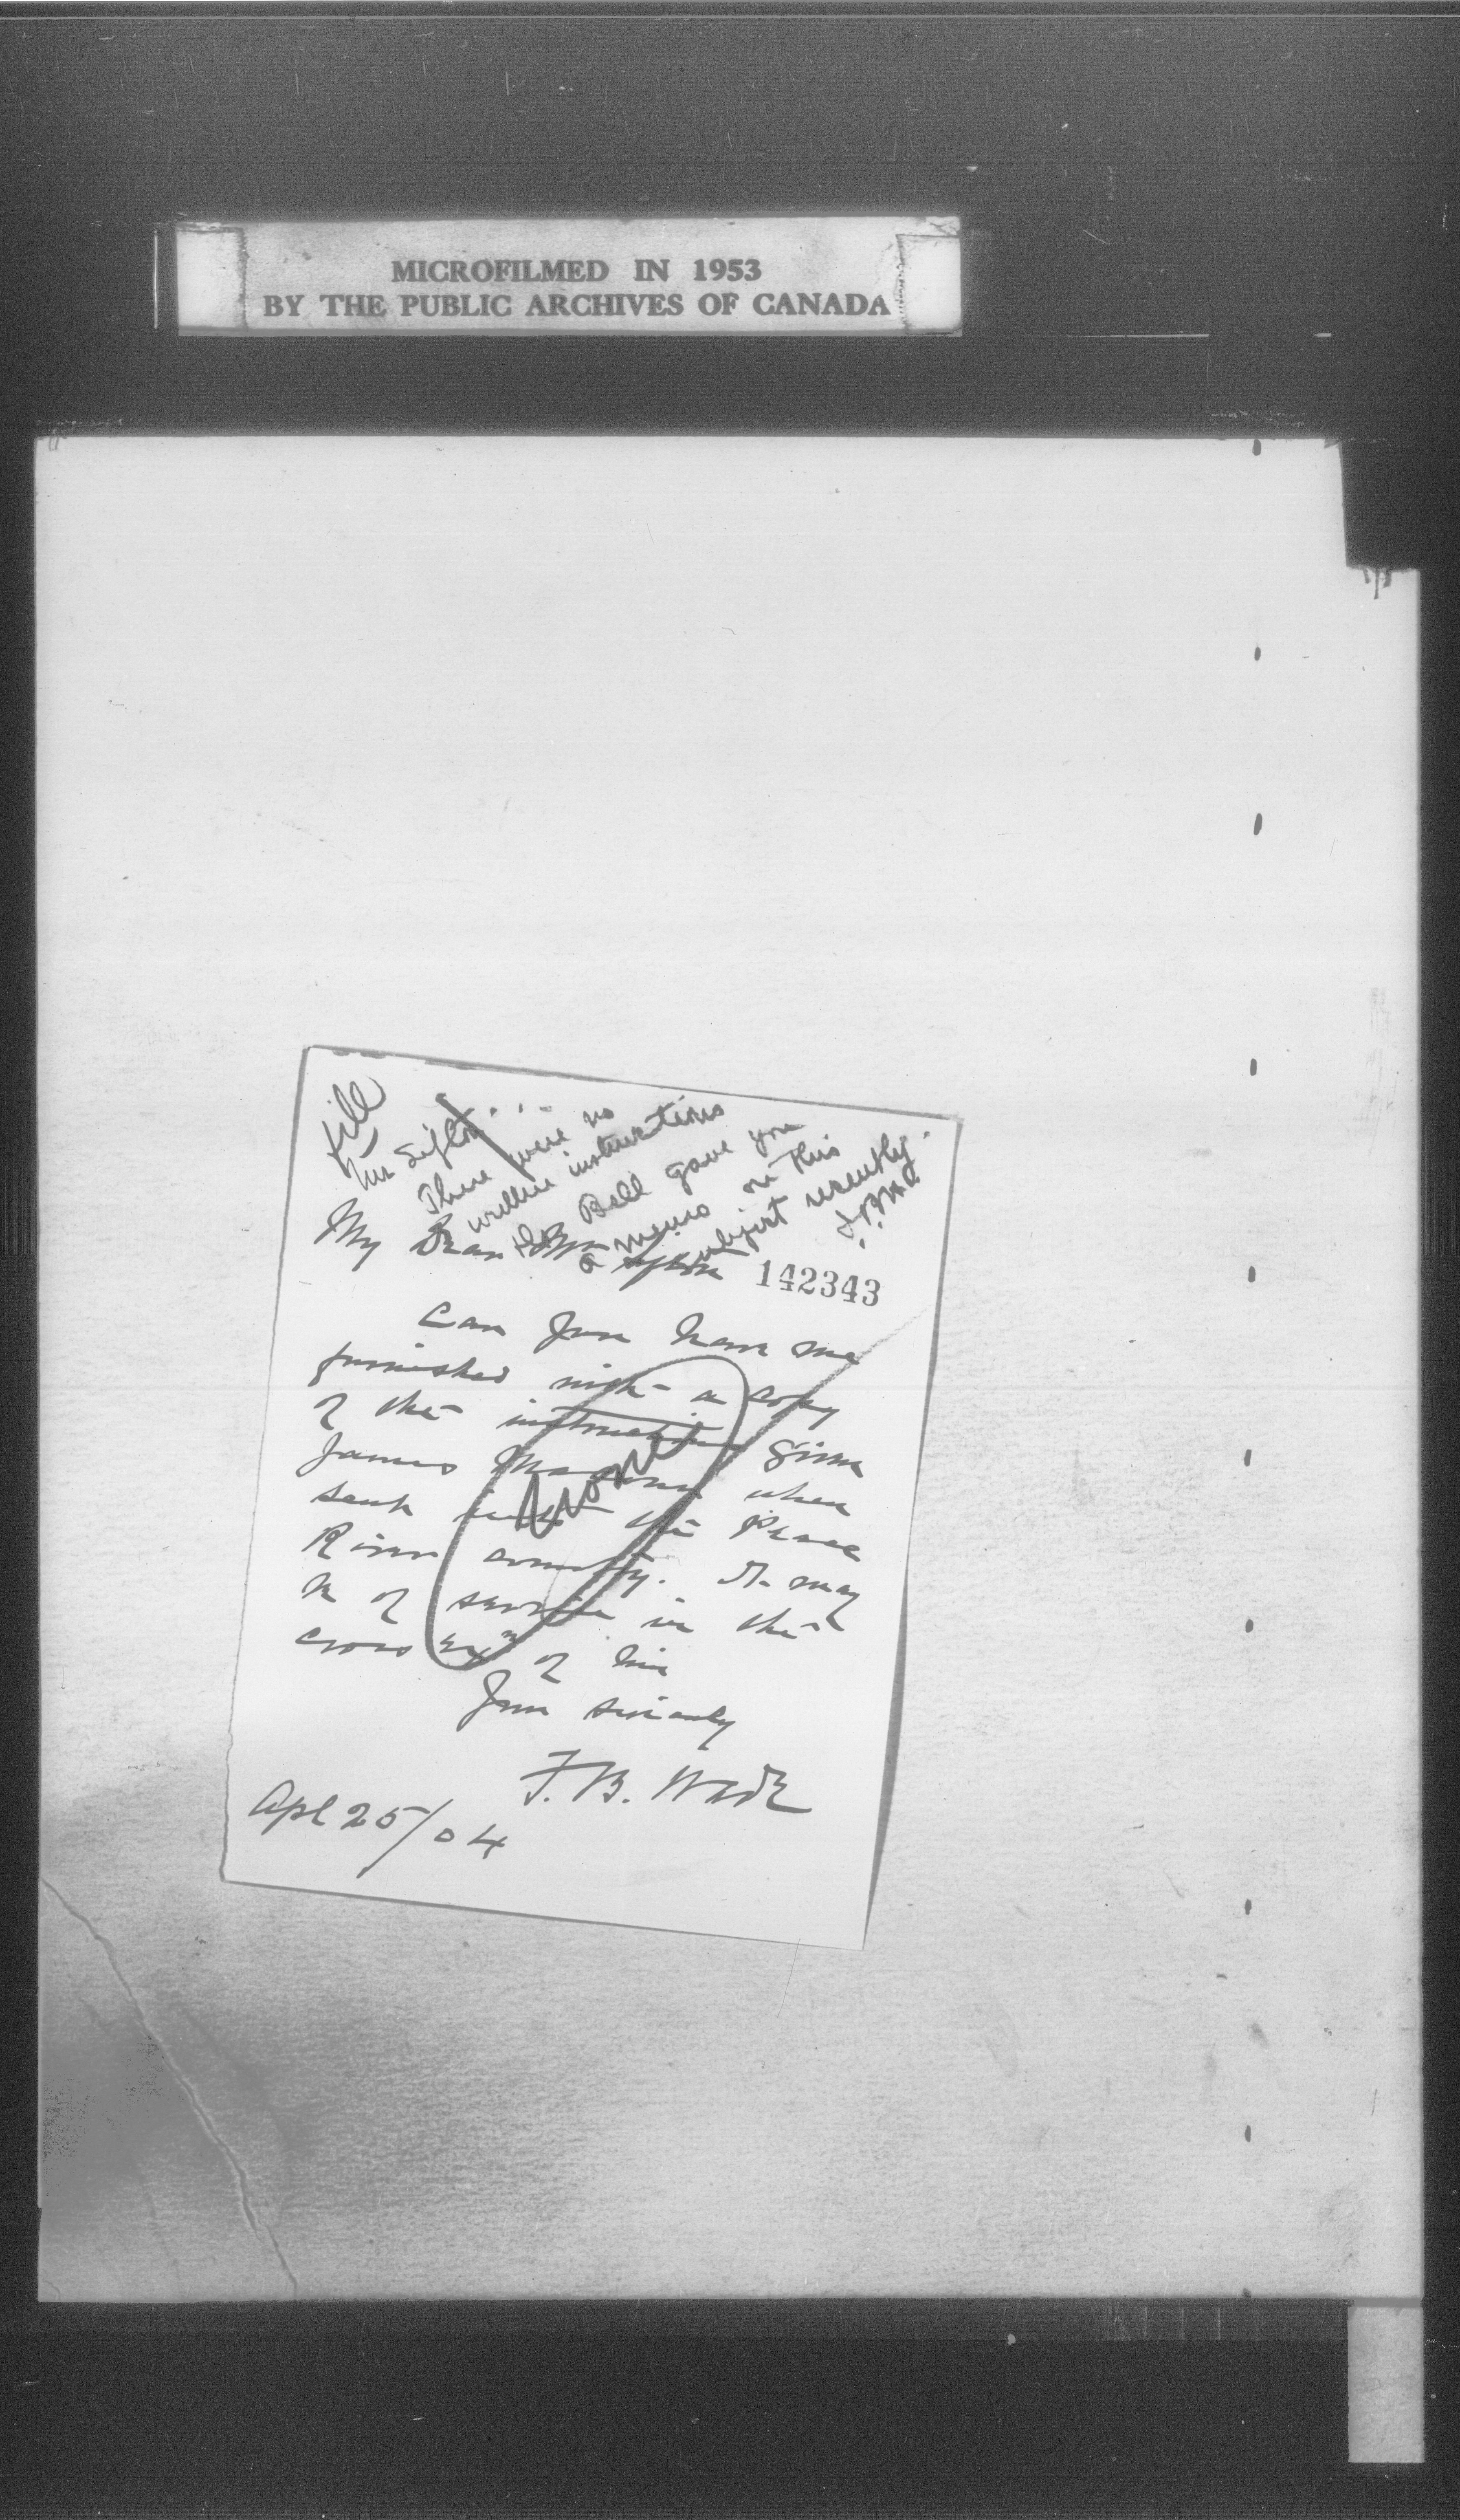 MICROFILMED IN 1953
BY THE PUBLIC ARCHIVES OF CANADA
file
Mr Sifton
There were no
written instructions
Bell gave you
a memo on this
subject recently.
My Dear Mr Sifton
142343
Can you have me
furnished with a copy
of the instructions given
James Macoun when
sent into the Peace
River country. It may
be of service in the
cross exn of him
None
Yours sincerely
F. B. Wade
Apl 25/04